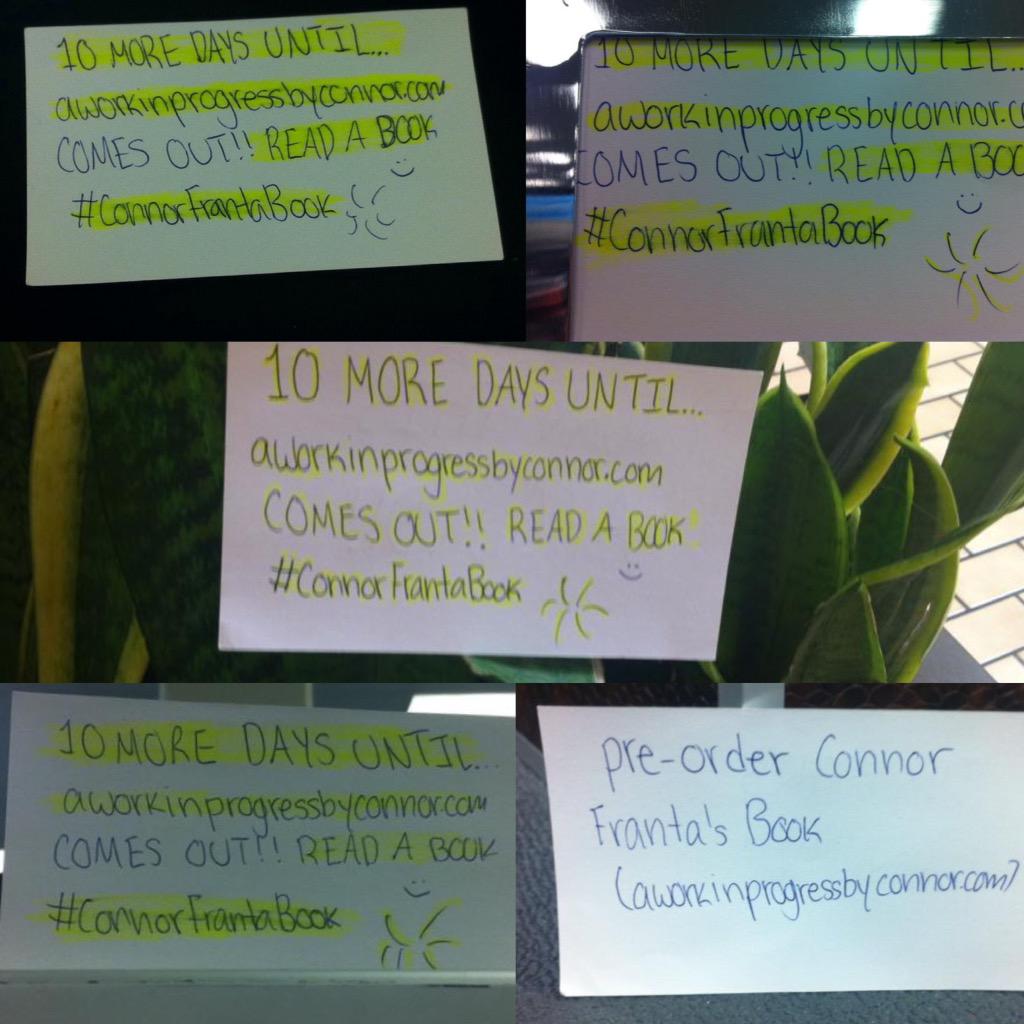 10 MORE DAYS UNTIL...
aworkinprogressbyconnor.com
COMES OUT!! READ A BOOK
#ConnorFrantaBook
10 MORE DAYS UNTIL...
aworkinprogressbyconnor.c
COMES OUT!! READ A BOO
#ConnorFrantaBook
10 MORE DAYS UNTIL...
aworkinprogressbyconnor.com
COMES OUT!! READ A BOOK!
#ConnorFrantaBook
10 MORE DAYS UNTIL...
aworkinprogressbyconnor.com
COMES OUT!! READ A BOOK
#ConnorFrantaBook
pre-order Connor
Franta's Book
(aworkinprogressbyconnor.com)